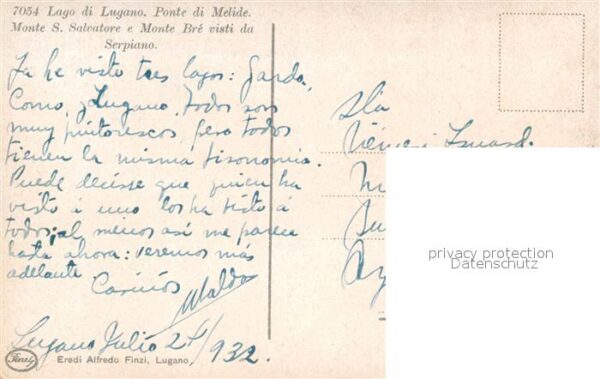 7054 Lago di Lugano. Ponte di Melide.
Monte S. Salvatore e Monte Bré visti da
Serpiano.
Ya he visto tres lagos: Garda,
Como, y Lugano. Todos son
muy pintorescos, pero todos
tienen la misma fisonomia.
Puede decirse que quien ha
visto á uno los ha visto á
todos; al menos así me parece
hasta ahora: veremos más
adelante.
Cariños
Waldo
Lugano Julio 27/932.
Finzi
Eredi Alfredo Finzi, Lugano
Isnard
privacy protection
Datenschutz